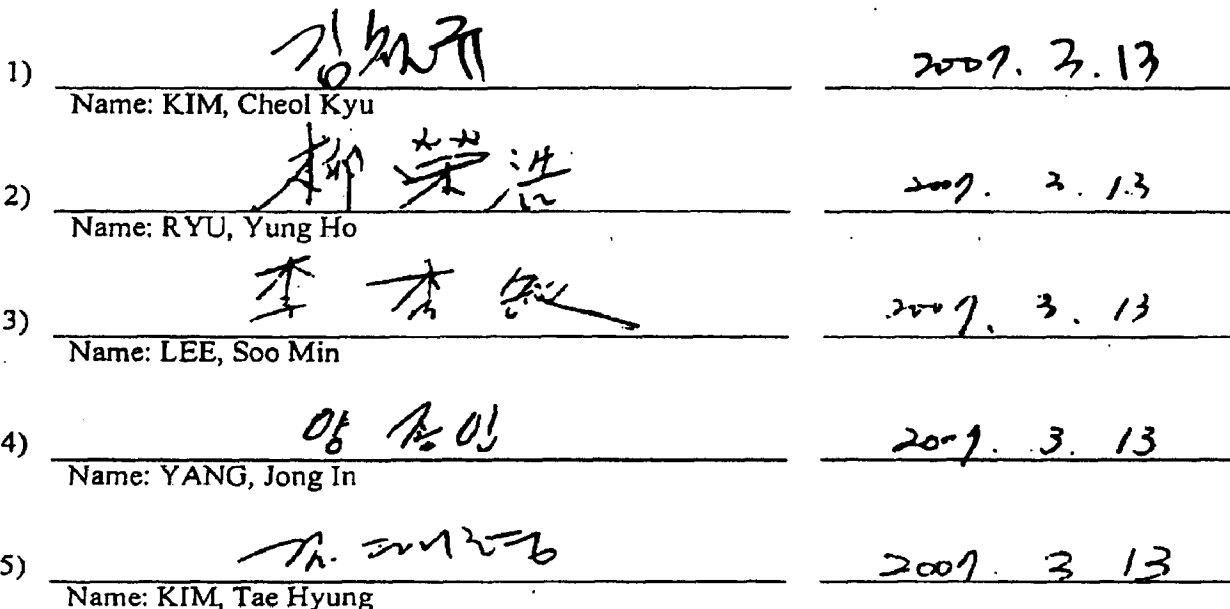 1) 김철규 2007. 3. 13
Name: KIM, Cheol Kyu
2) 柳榮浩 2007. 3. 13
Name: RYU, Yung Ho
3) 李 2007. 3. 13
Name: LEE, Soo Min
4) 양종인 2007. 3. 13
Name: YANG, Jong In
5) 2007. 3 13
Name: KIM, Tae Hyung